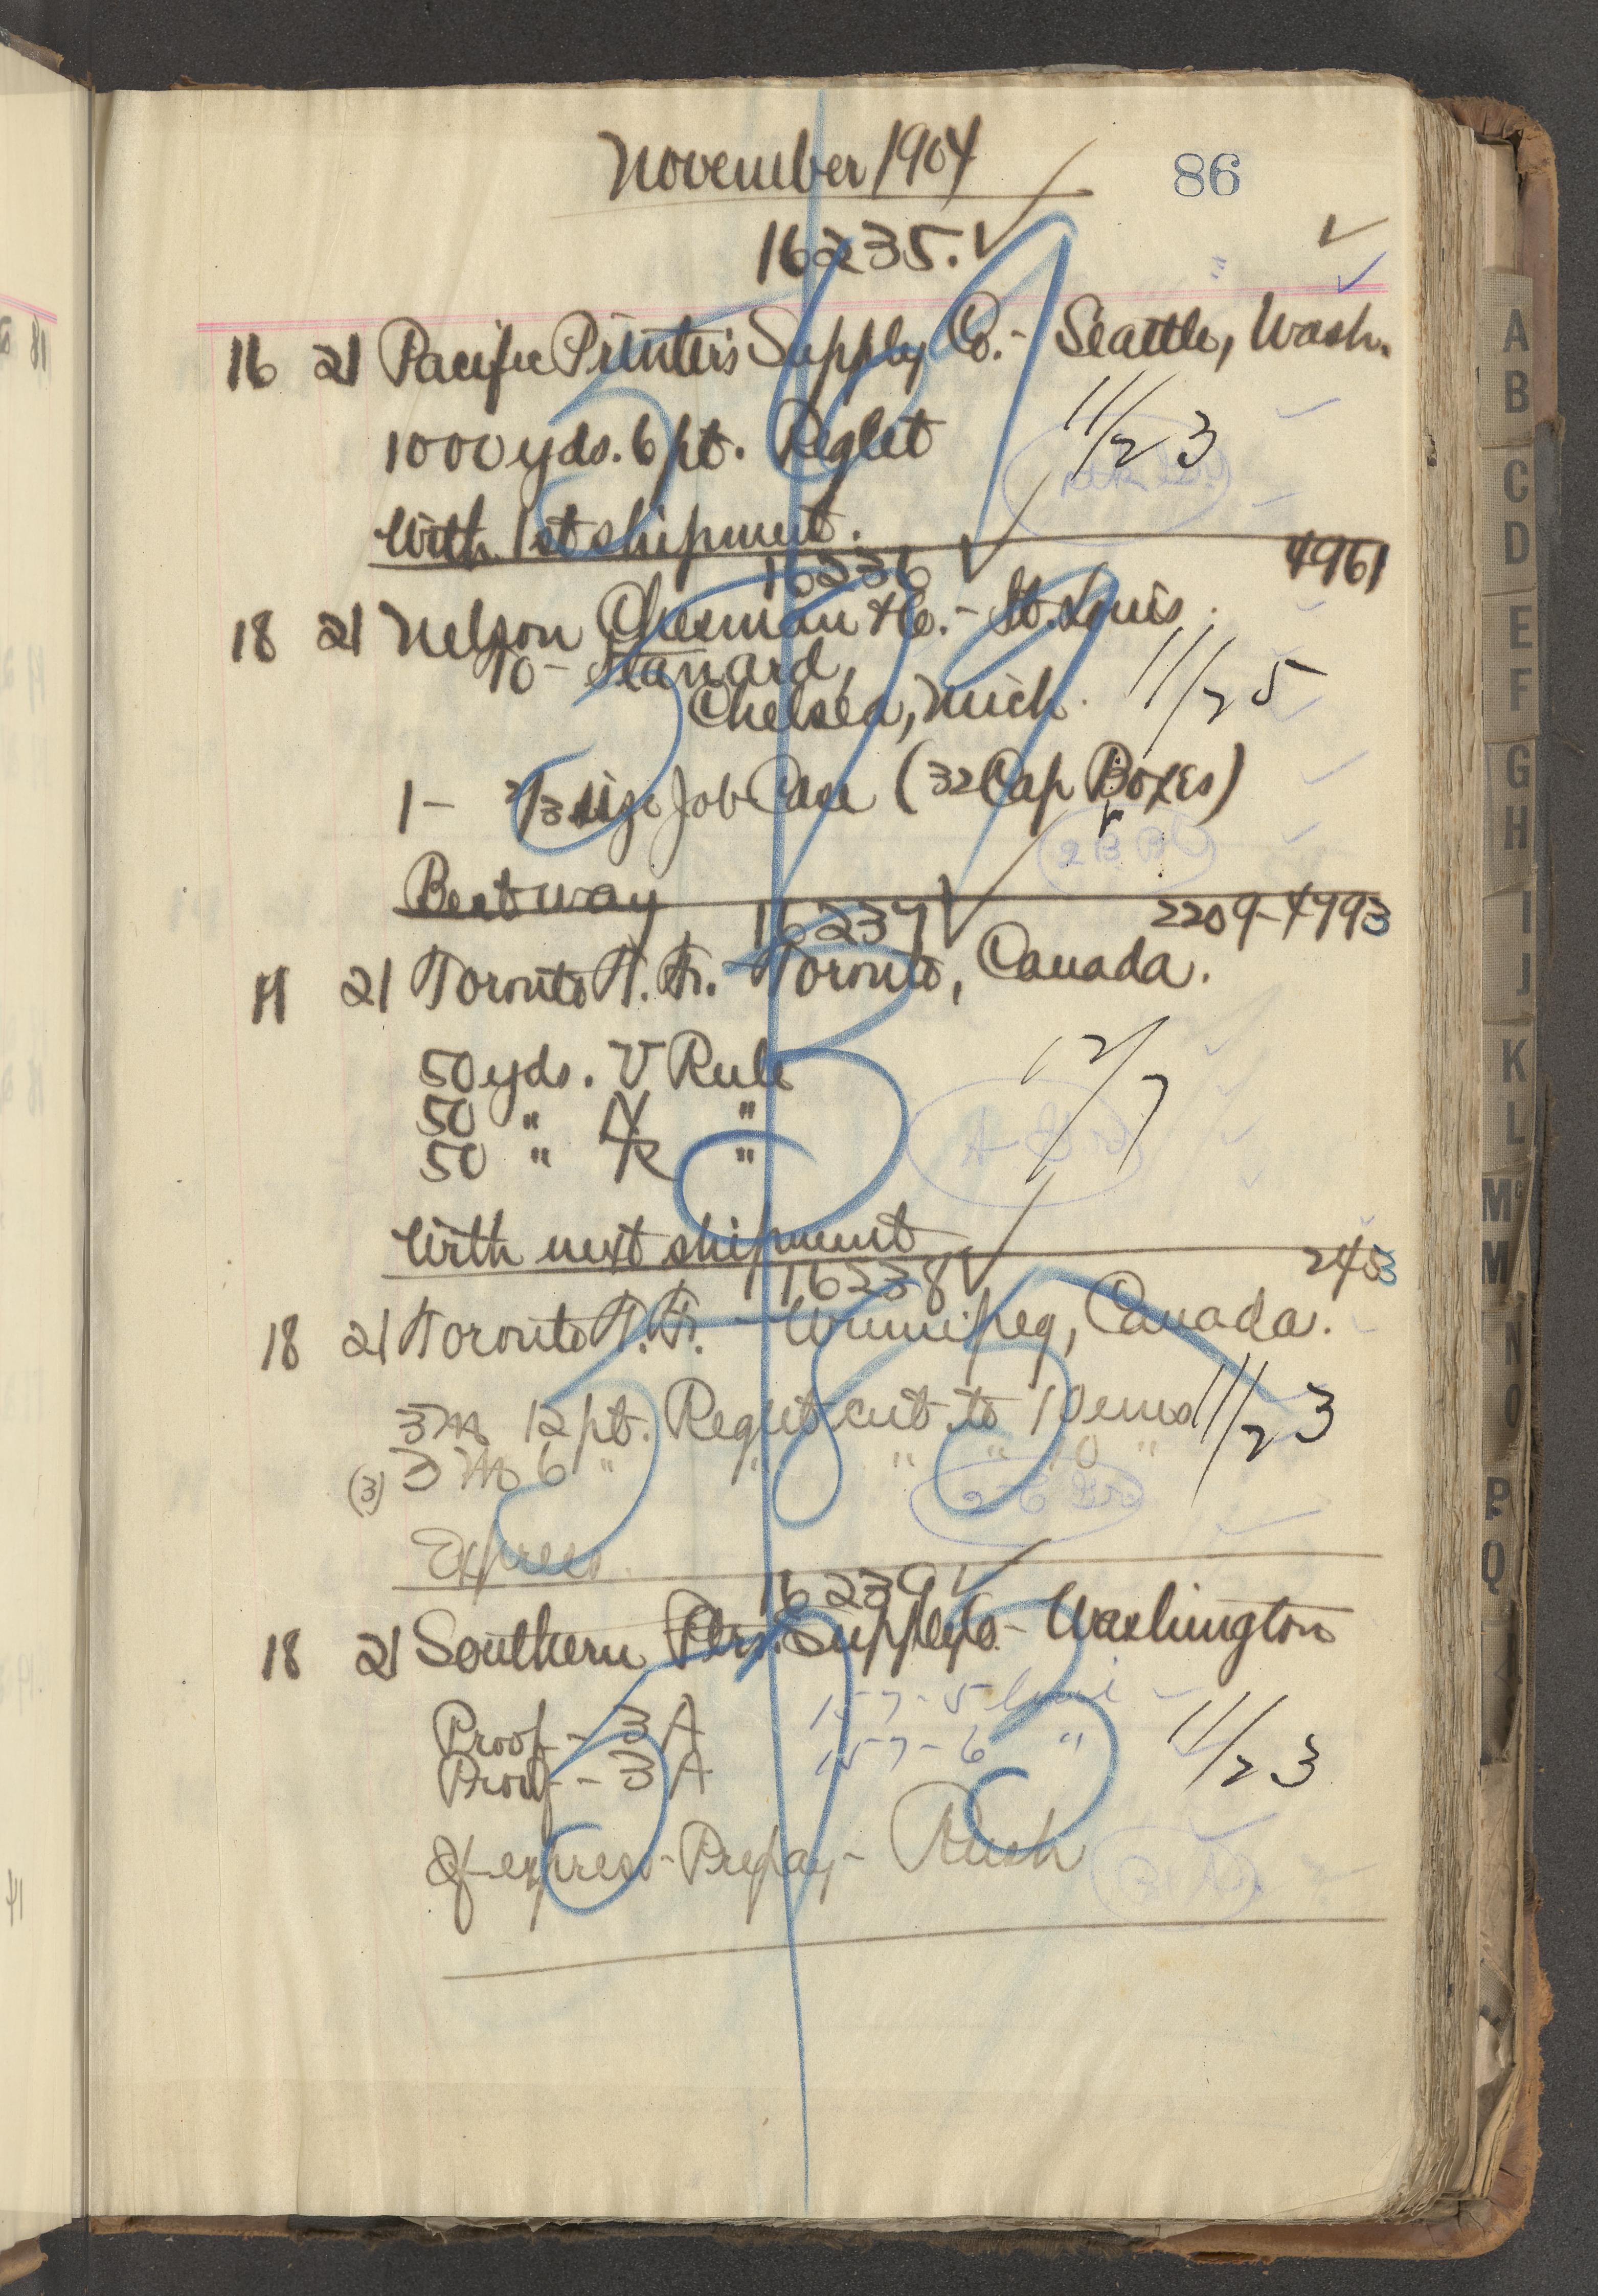 November 1904
86
16235.
16 21 Pacific Printers Supply Co. - Seattle, Wash.
1000 yds. 6 pt. Reglet
11/23
With 1st shipment.
16236
4961
18 21 Nelson Chesman & Co. - St. Louis.
To - Stanard,
Chelsea, Mich.
11/25
1 - 2/3 size Job Case (32 Cap Boxes)
Best way
16237
2209-4993
21 Toronto T. F. - Toronto, Canada.
50 yds. V Rule
12/7
50 " "
50 " "
With next shipment
16238
2453
18 21 Toronto T. F. - Winnipeg, Canada.
3m 12 pt. Reglet cut to 10 ems
11/23
(3) 6 " " " " 10 "
Express
16239
18 21 Southern Ptrs. Supply Co. - Washington
Proof - 3 A 157-5
Proof - 3 A 157-6 "
11/23
express - Prepay - Rush
A
B
C
D
E
F
G
H
I
J
K
L
Mc
M
N
O
P
Q